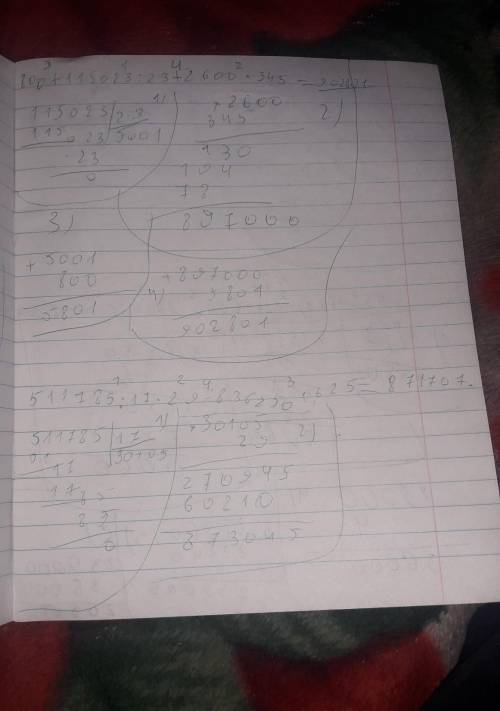 3 1 4 2
800+115023:23+2600·345=902801
115023|23 1)
115 |5001
023
23
0
×2600 2)
345
130
104
78
897000
3)
+5001
800
5801
4)
+897000
5801
902801
1 2 4 3
511785:17·29
=871707.
511785|17 1)
51 |30105
17
17
85
85
0
×30105 2)
29
270945
60210
873045